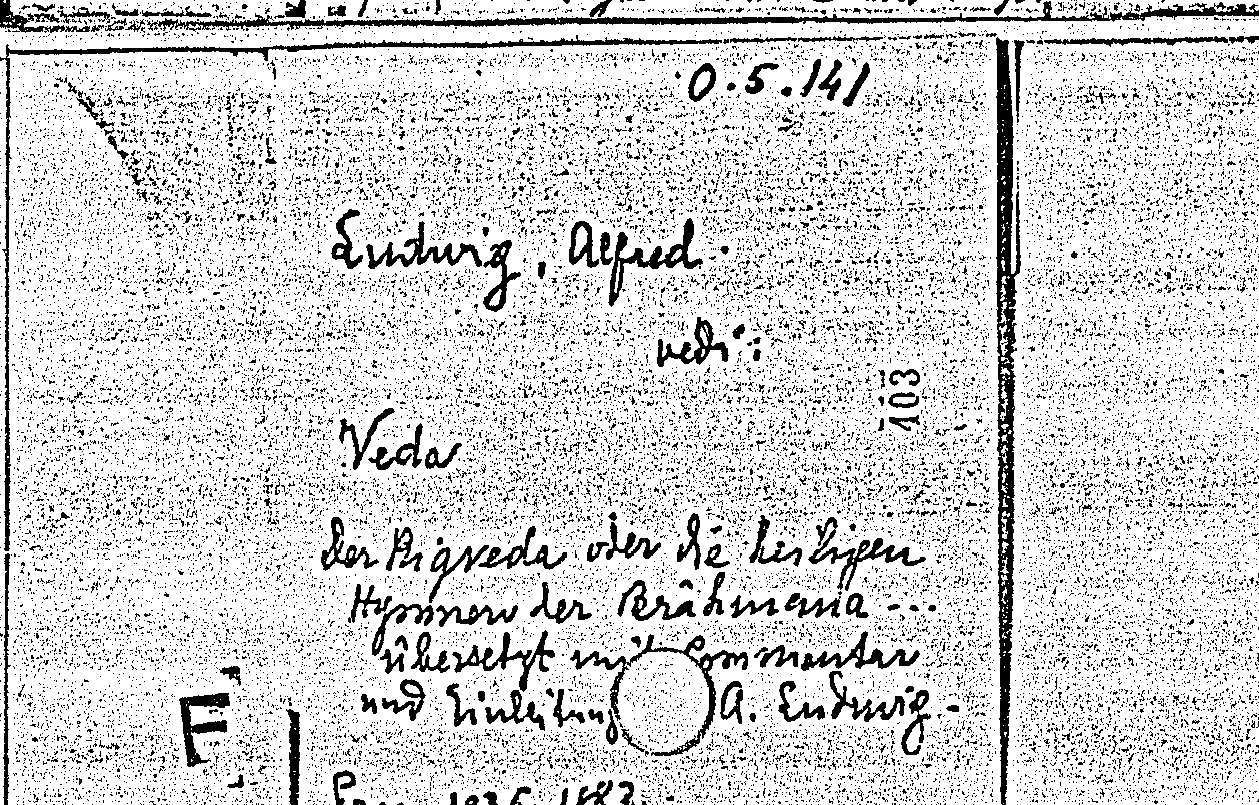 O.5.141
Ludwig, Alfred.
vedi:
103
Veda
Der Rigveda oder die heiligen
Hymnen der Brâhmana ...
übersetzt mit Commentar
und Einleitung A. Ludwig.-
E